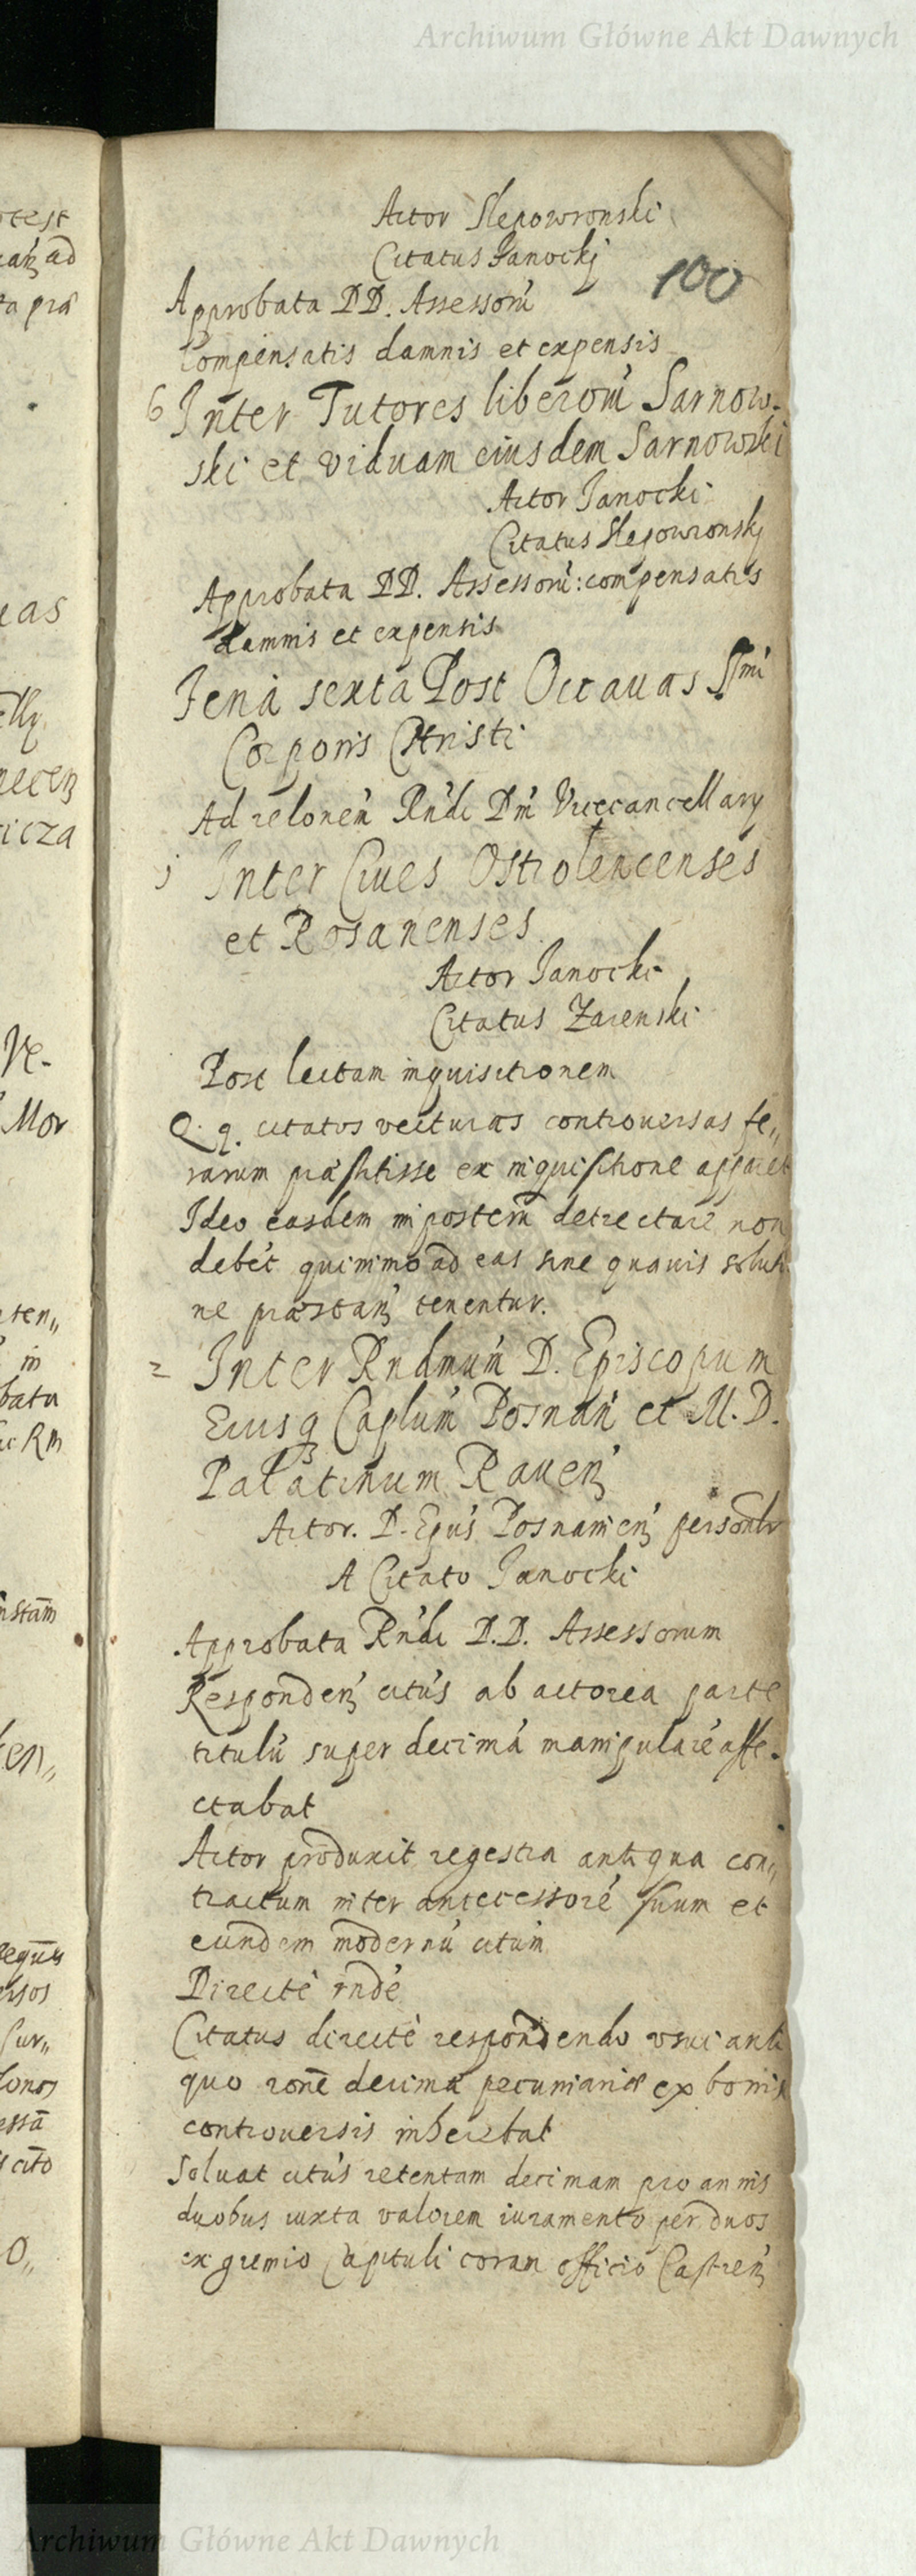 Archiwum Główne Akt Dawnych
Actor Slepowronski
Citatus Janockj
100
Approbata DD. Assessorú
Compensatis damnis et expensis
6 Inter Tutores liberorú Sarnow-
ski et viduam eiusdem Sarnowski
Actor Janocki
Citatus Slepowronskj
Approbata DD. Assessorú: compensatis
damnis et expensis
Feria sexta Post Octauas SSmi
Corporis Christi
Ad relonem Rndi Dni Vicecancellarij
1 Inter Ciues Ostrolencenses
et Rosanenses
Actor Janocki
Citatus Zarenski
Post lectam inquisitionem
Q. q. citatos vecturas controuersas fe„
rarum præstitisse ex inquisitione apparet
Ideo easdem in posterm detrectare non
debet quinimo ad eas sine quauis soluti
ne præstan tenentur.
2 Inter Rndmum D. Episcopum
Eiusq Caplum Posnan et M. D.
Palatinum Rauen
Actor. D. Epus Posnanien personlr
A Citato Janocki
Approbata Rndi D.D. Assessorum
Responden citus ab actorea parte
titulú super decimá manipularé affe-
ctabat
Actor produxit regestra antiqua con„
tractum inter antecessoré suum et
eundem modernú citum
Directe rnde
Citatus directe respondendo vsui anti
quo rone decimæ pecuniariæ ex bonis
controuersis inherebat
Soluat citus retentam decimam pro annis
duobus iuxta valorem iuramento per duos
ex gremio Capituli coram officio Castren
Archiwum Główne Akt Dawnych